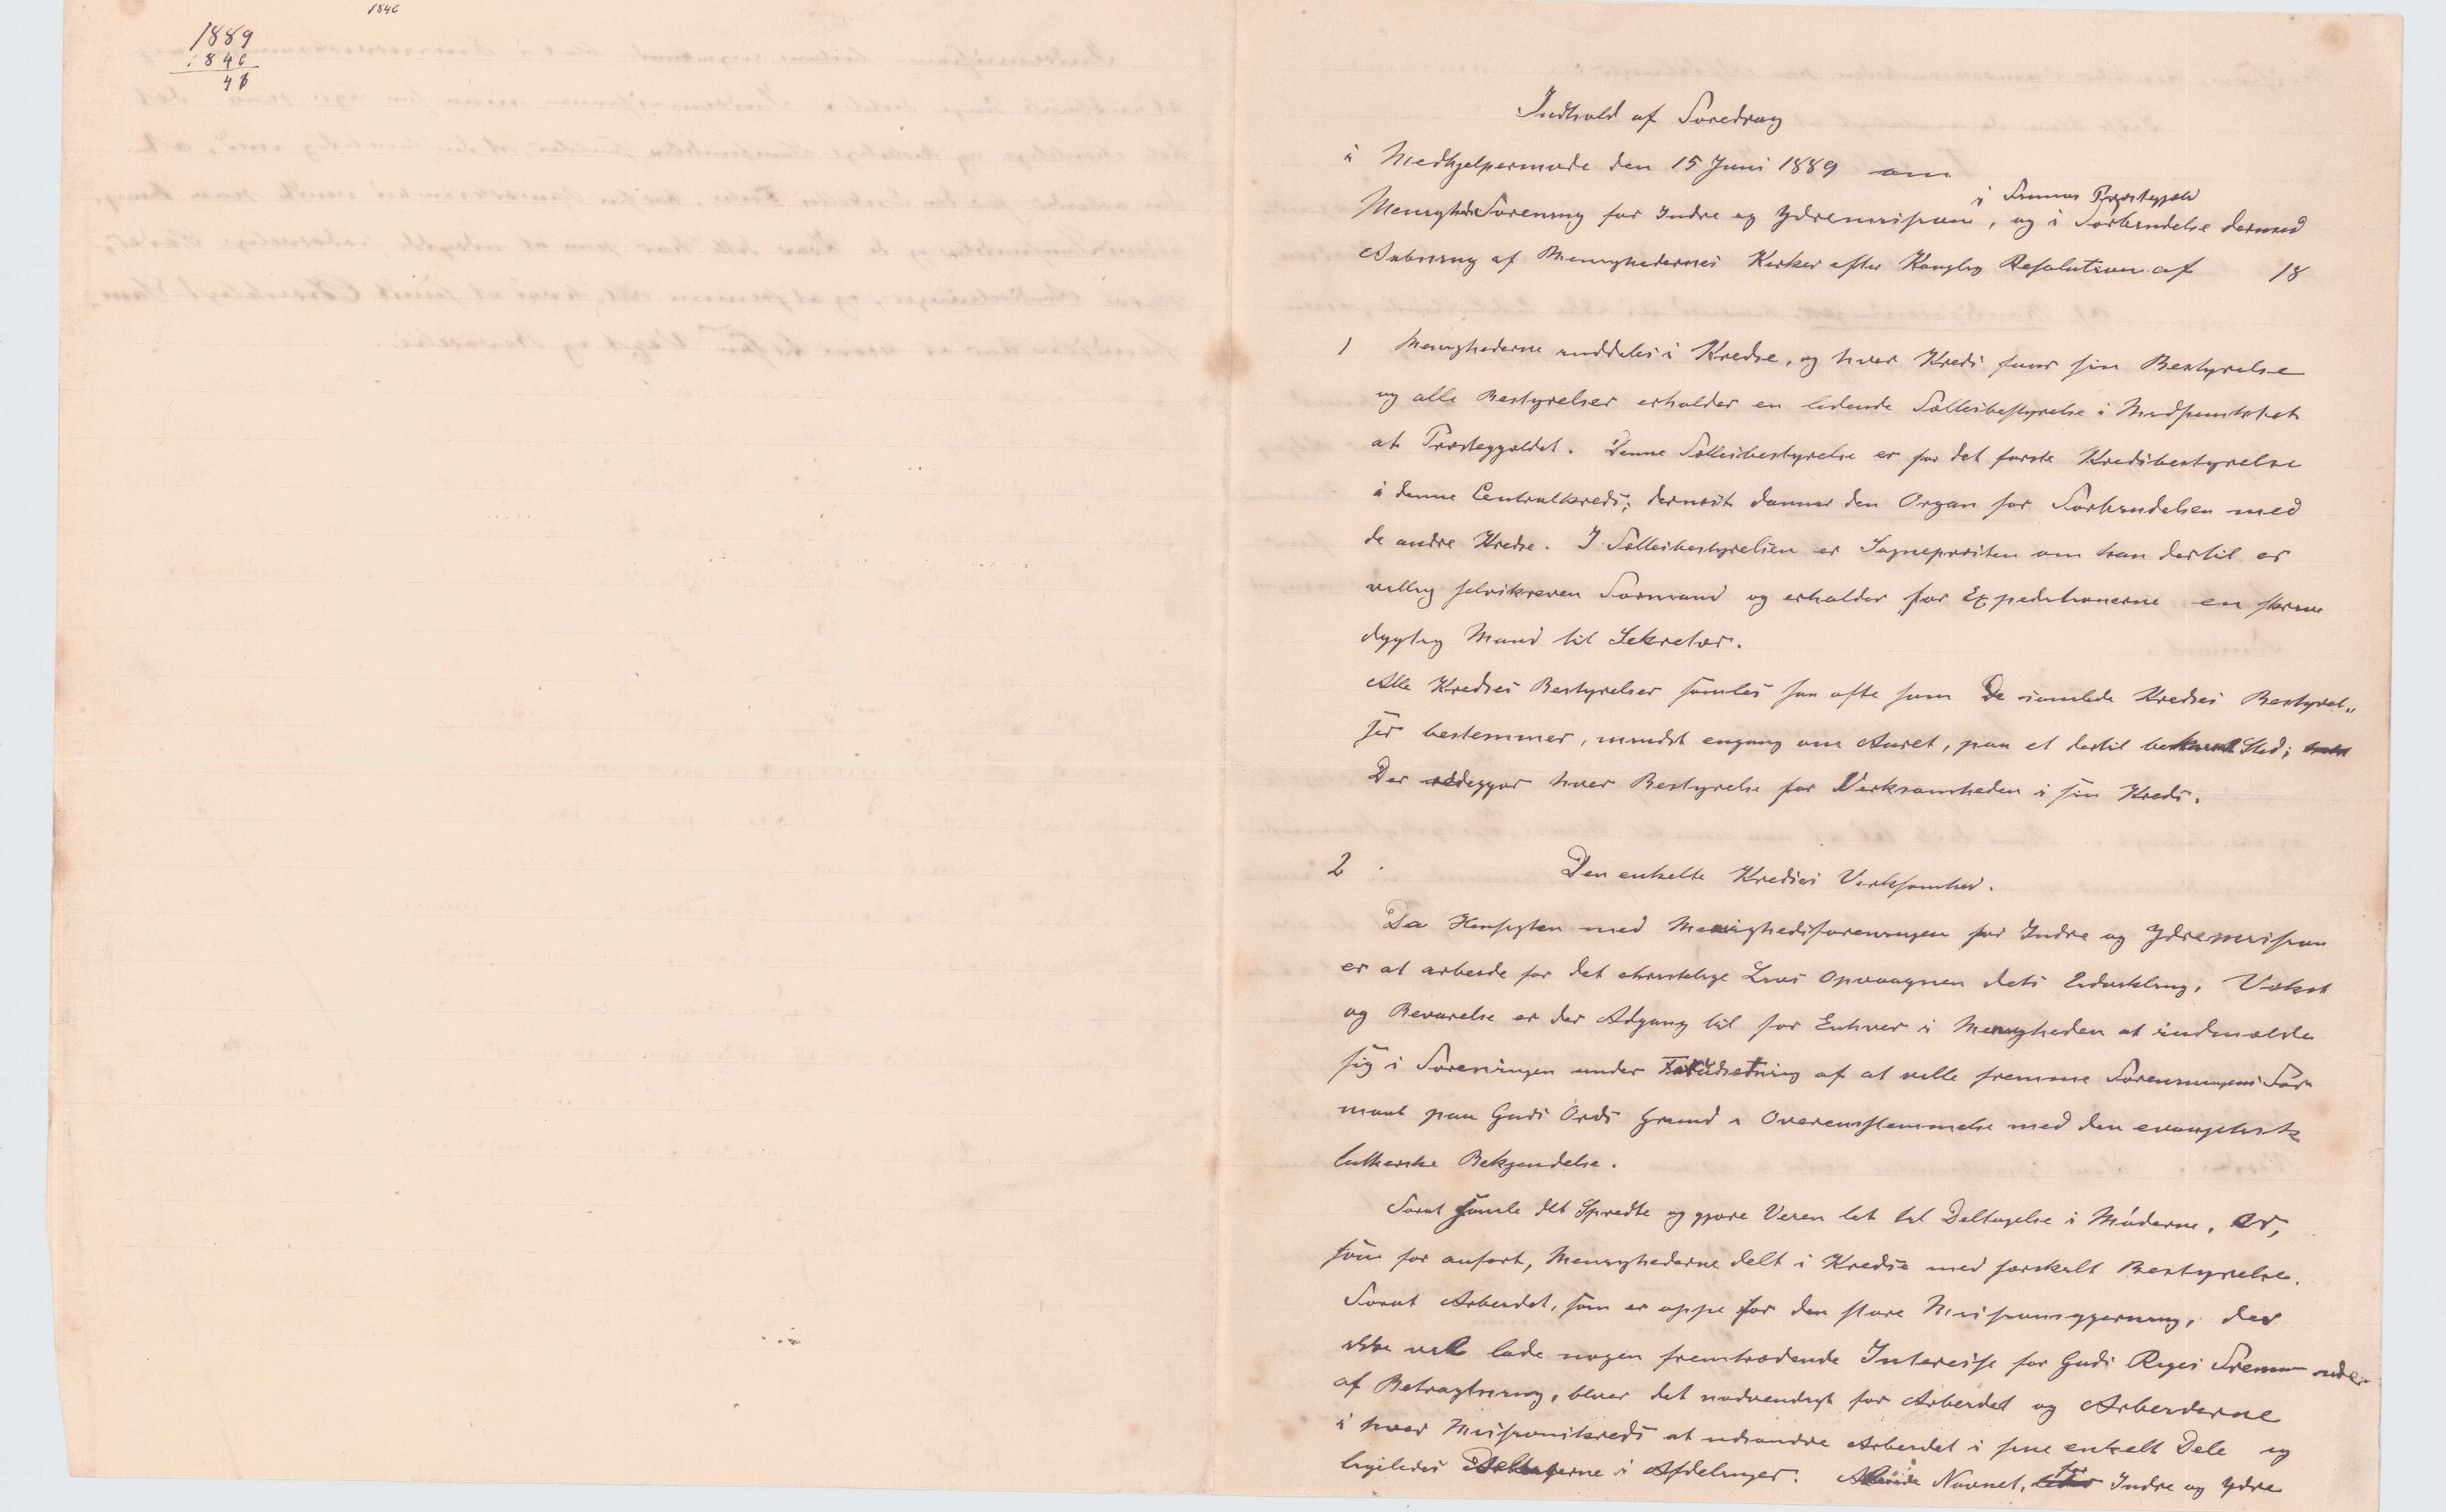 1846
1889
1846
43
Indhold af Foredrag
i Medhjelpermøde den 15 Juni 1889 om
i Præstegjeld
Menighedsforening for Indre og Ydremission, og i Forbindelse dermed
Aabning af Menighedernes Kirker efter Kongelig Resolution af 18
1 Menighederne inddeles i Kredse, og hver Kreds faar sin Bestyrelse
og alle Bestyrelser erholder en ledende Fællesbestyrelse i Midtpunktet
af Præstegjeldet. Denne Fællesbestyrelse er for det første Kredsbestyrelse
i denne Centralkreds; dernæst danner den Organ for Forbindelsen med
de andre Kredse. I Fællesbestyrelsen er Sognepresten om han dertil er
villig selvskreven Formand og erholder for Expeditionerne en skrive
dygtig Mand til Sekretær.
Alle Kredses Bestyrelser samles saa ofte som De samlede Kredses Bestyrel„
ser bestemmer, mindst engang om Aaret, paa et dertil bestemt Sted;
Der redegjør hver Bestyrelse for Virksomheden i sin Kreds.
2 Den enkelte Kredses Virksomhed.
Da Hensigten med Menighedsforeningen for Indre og Ydremission
er at arbeide for det christelige Livs Opvaagnen dets Udvikling, Vækst
og Bevarelse er der Adgang til for Enhver i Menigheden at indmelde
sig i Foreningen under Forudsætning af at ville fremme Foreningens For
maal paa Guds Ords Grund i Overensstemmelse med den evangelisk
lutherske Bekjendelse.
Forat samle det Spredte og gjøre Veien let til Deltagelse i Møderne, er,
som før anført, Menighederne delt i Kredse med særskilt Bestyrelse.
Forat Arbeidet, som er oppe for den store Missionsgjerning, der
ikke vil lade nogen fremtrædende Interesse for Guds Riges Fremme ude
af Betragtning, bliver det nødvendigt for Arbeidet og Arbeiderne
i hver Missionskreds at udsondre Arbeidet i sine enkelt Dele og
ligeledes Deltagerne i Afdelinger. Allerede Navnet, for Indre og Ydre